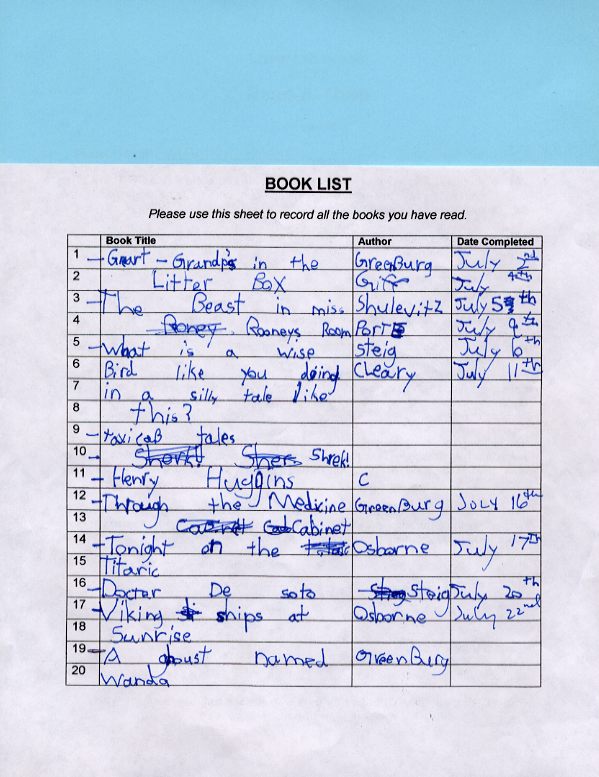 BOOK LIST
Please use this sheet to record all the books you have read.
Book Title Author Date Completed
1 - Great - Grandpa's in the GreenBurg July 2nd
2 Litter Box Giff July 4th
3 - The Beast in miss Shulevitz July 5th
4 Rooneys Room Porte July 9th
5 - What is a wise Steig July 6th
6 Bird like you doing Cleary July 11th
7 in a silly tale like
8 this?
9 - taxicaB tales
10 Shrek!
11 - Henry Huggins C
12 - Through the Medicine GreenBurg JULY 16th
13 Cabinet
14 - Tonight on the Osborne July 17th
15 Titanic
16 - Doctor De soto Steig July 20th
17 - Viking ships at Osborne July 22nd
18 Sunrise
19 - A ghoust named GreenBurg
20 Wanda